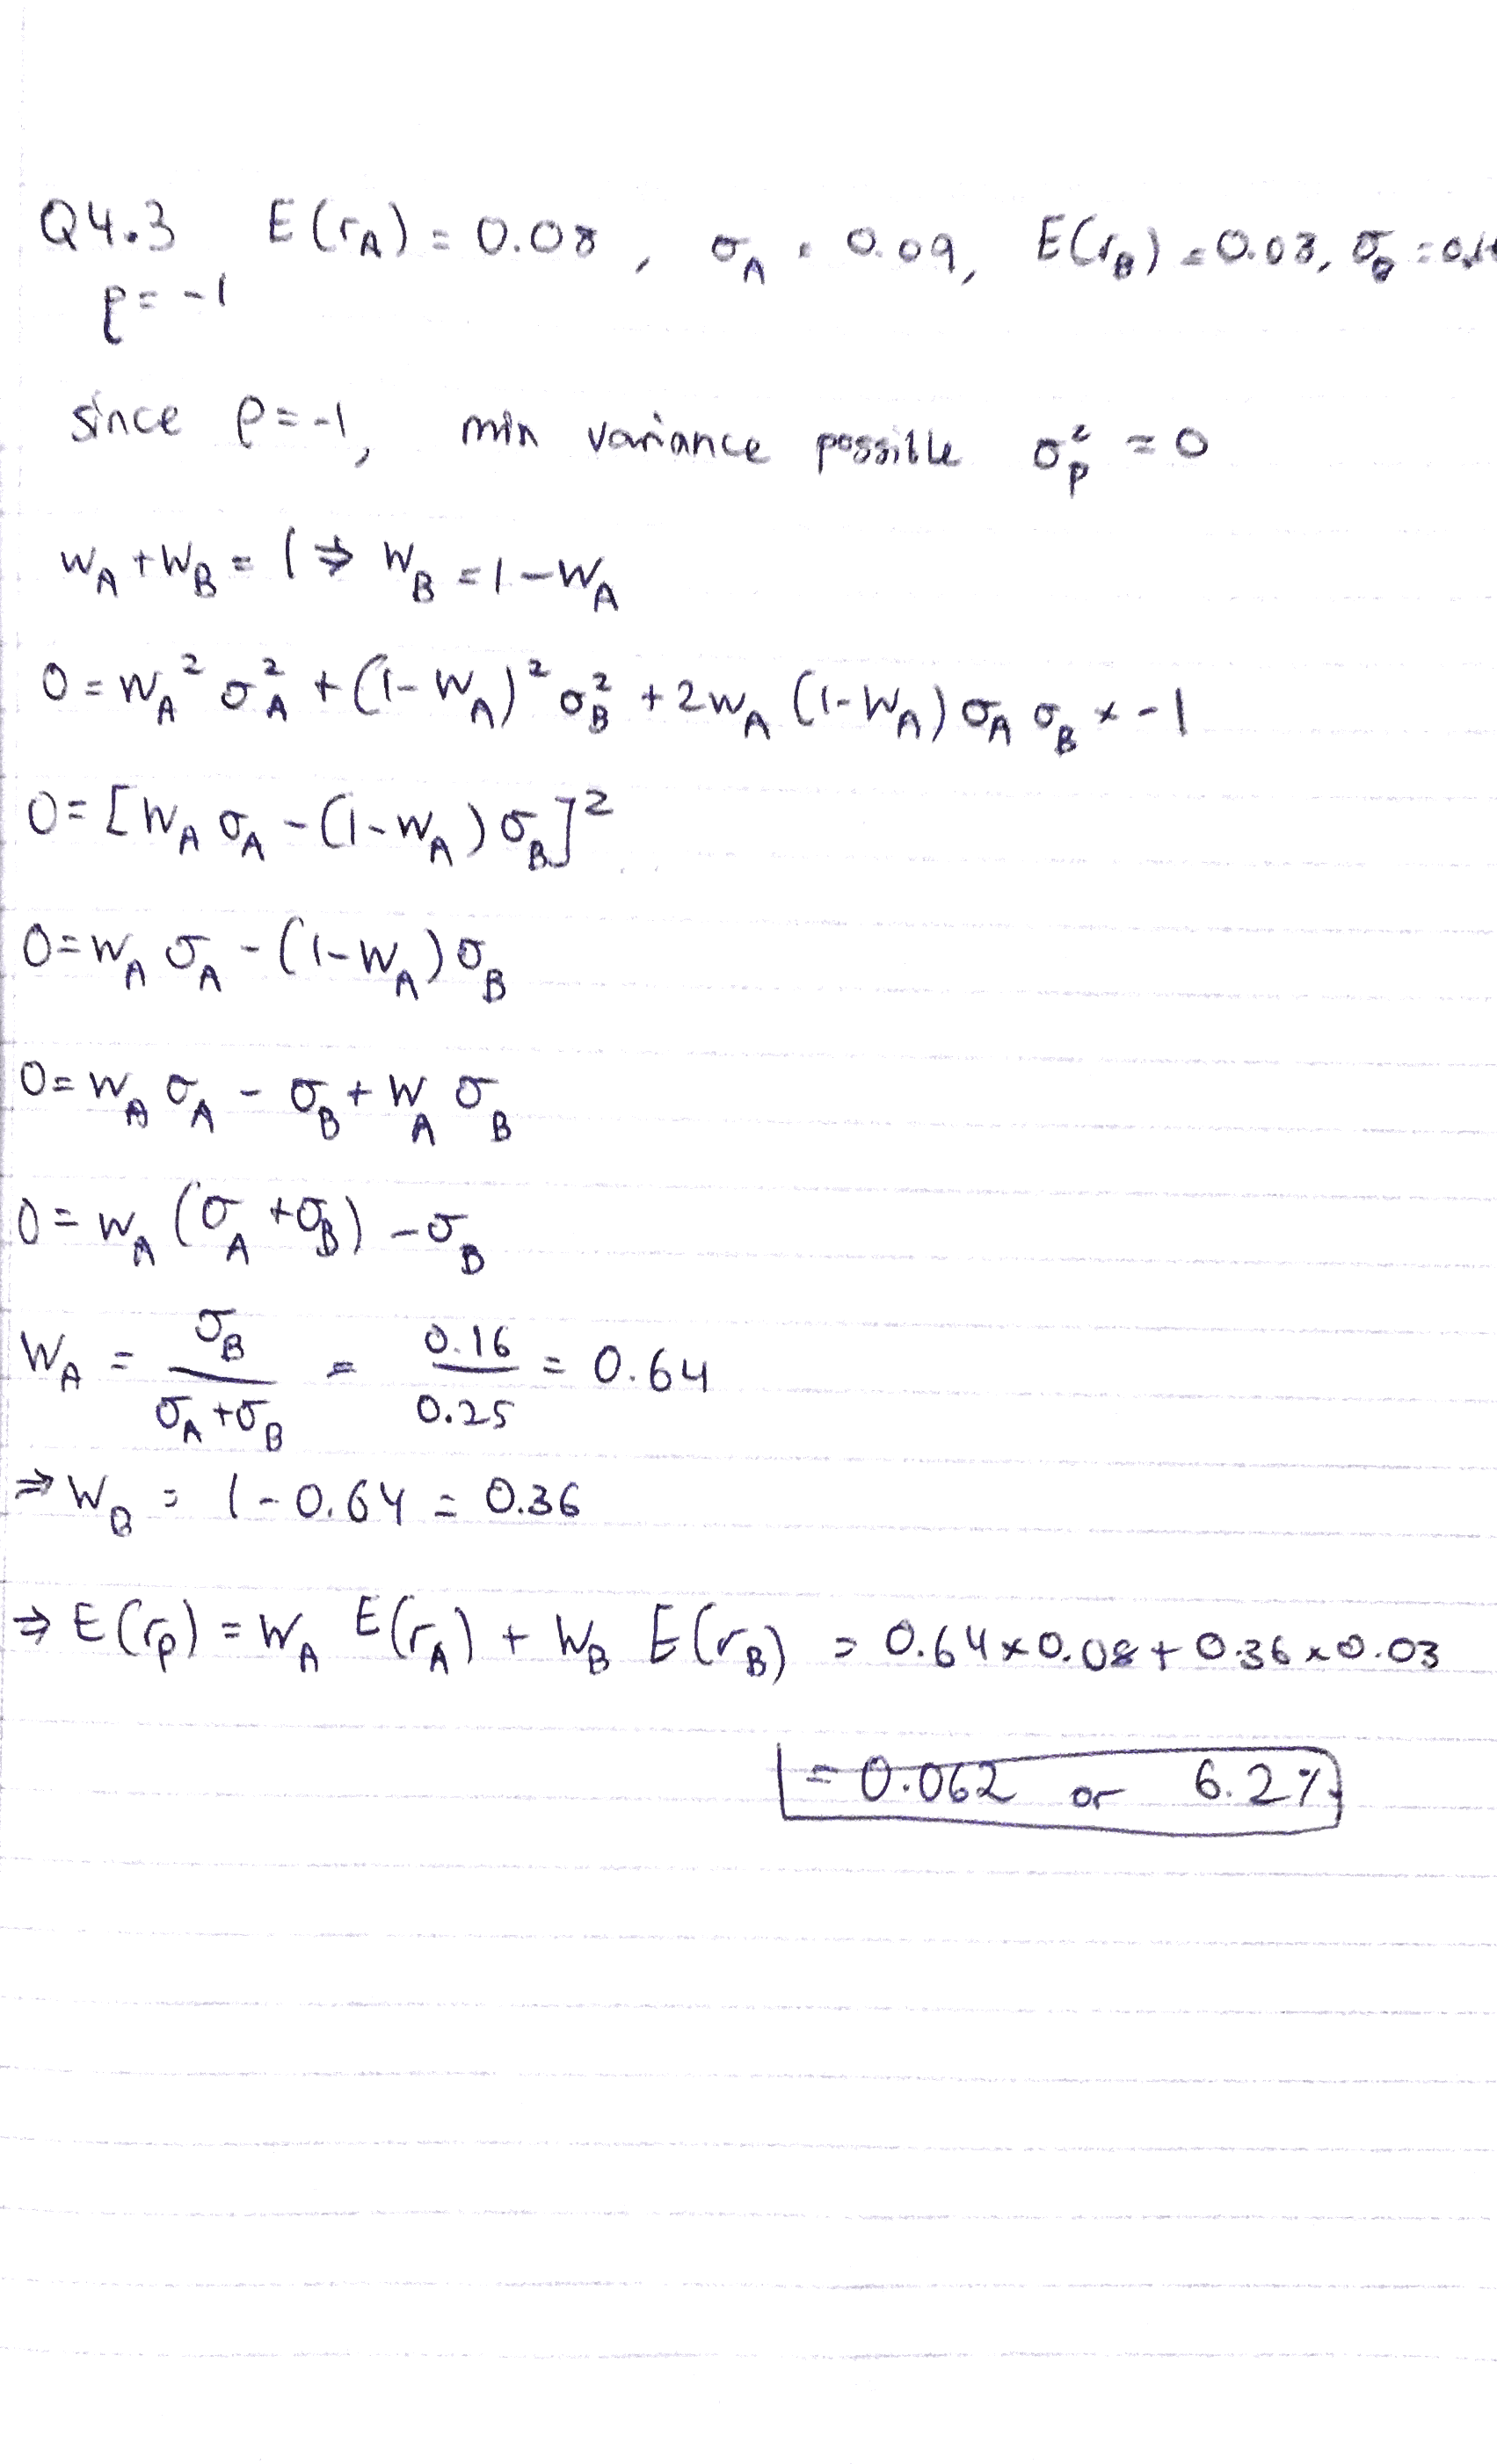 Q4.3 E(r_A) = 0.08, σ_A = 0.09, E(r_B) = 0.03, σ_B =
ρ = -1
since ρ = -1, min variance possible σ_p² = 0
w_A + w_B = 1 ⇒ w_B = 1 - w_A
0 = w_A² σ_A² + (1 - w_A)² σ_B² + 2w_A (1 - w_A) σ_A σ_B × -1
0 = [w_A σ_A - (1 - w_A) σ_B]²
0 = w_A σ_A - (1 - w_A) σ_B
0 = w_A σ_A - σ_B + w_A σ_B
0 = w_A (σ_A + σ_B) - σ_B
w_A = σ_B / (σ_A + σ_B) = 0.16 / 0.25 = 0.64
⇒ w_B = 1 - 0.64 = 0.36
⇒ E(r_p) = w_A E(r_A) + w_B E(r_B) = 0.64 × 0.08 + 0.36 × 0.03
= 0.062 or 6.2%